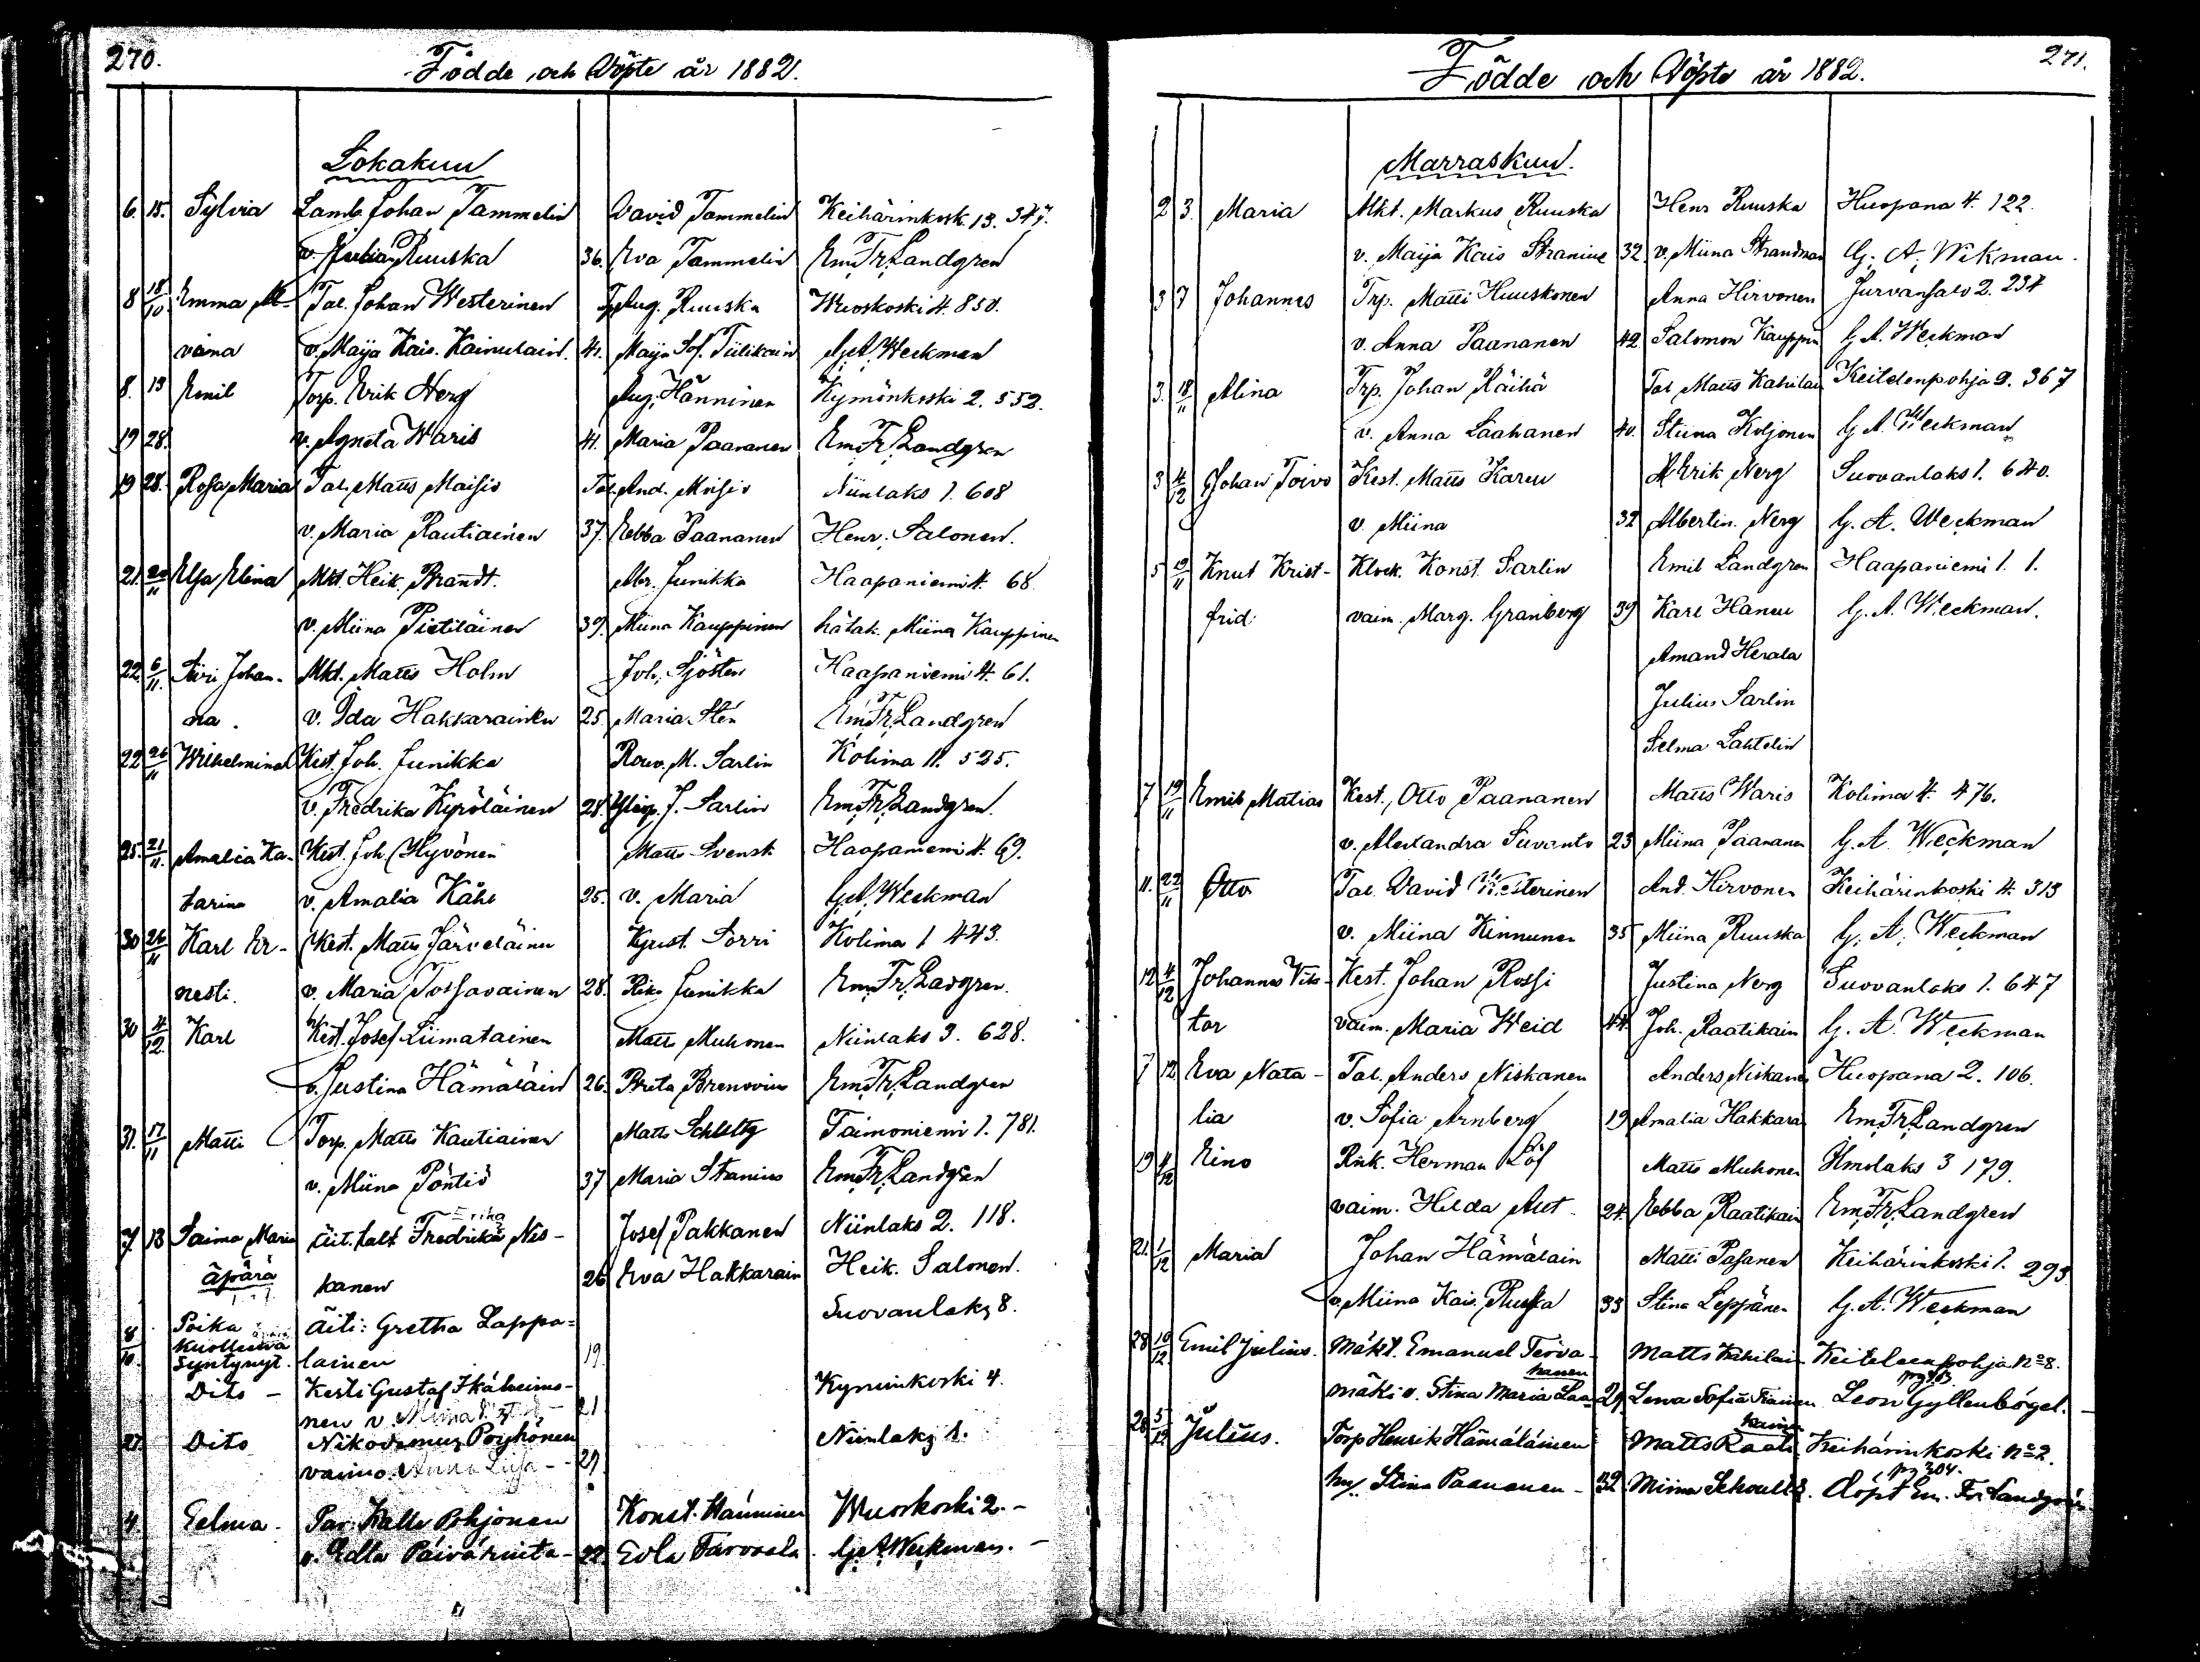 270.
Födde och Döpte år 1882.
Lokakuu
6. 15. Sylvia Lamb. Johan Tammelin David Tammelin Keihärinkosk. 13. 347.
v. Julia Ruuska 36. Eva Tammelin Em. Fr. Landgren
8 18/10. Emma Al- Tal. Johan Westerinen Aug. Ruuska Wuoskoski 4. 850.
vina v. Maija Kais. Kainulain. 41. Maija Sof. Tiilikain G. A. Weckman
8. 13 Emil Torp. Erik Nerg Aug. Hänninen Kymönkoski 2. 552.
19 28. v. Agneta Waris 41. Maria Paananen Em. Fr. Landgren
19 28. Rosa Maria Tal. Matts Maisio Tal. And. Maisio Niinlaks 1. 608
v. Maria Rautiainen 37. Ebba Paananen Henr. Salonen.
21. 20/11 Elsa Elina Mkt. Heik. Brandt. Abr. Junikka Haapaniemi 4. 68
v. Miina Pietiläinen 39. Miina Kauppinen hätäk. Miina Kauppinen
22. 6/11. Siiri Johan- Mkt. Matts Holm Joh. Sjösten Haapaniemi 4. 61.
na. v. Ida Hakkarainen 25. Maria Sten Em. Fr. Landgren
22 26/11 Wilhelmina Kest. Joh. Junikka Rouv. M. Sarlin Kolima 11. 525.
v. Fredrika Kyröläinen 28. Yliop. J. Sarlin Em. Fr. Landgren.
25. 21/11. Amalia Ka- Kest. Joh. Hyvönen Matts Svensk Haapaniemi 4. 69.
tarina v. Amalia Kåhl 25. v. Maria G. A. Weckman
30 26/11 Karl Er- Kest. Matts Järveläinen Krist. Sorri Kolima 1 443.
nesti. v. Maria Tossavainen 28. Riko Junikka Em. Fr. Landgren.
30 4/12. Karl Kest. Josef Liimatainen Matts Muhonen Niinlaks 3. 628.
v. Justina Hämäläin 26. Brita Brenovius Em. Fr. Landgren
31. 17/11 Matti Torp. Matts Rautiainen Matts Schlettz Taimoniemi 1. 781.
v. Miina Pöntiö 37 Maria Stanius Em. Fr. Landgren
7 13 Saima Maria äit. talt. Fredrika Erika Nis- Josef Pakkanen Niinlaks 2. 118.
äpärä kanen 26 Eva Hakkarain Heik. Salonen.
8/10. Poika kuolleena syntynyt. Äiti: Gretha Lappa= Suovanlaks 8.
lainen 19.
Dito - Kesti Gustaf Ikäheimo- Kymönkoski 4.
nen v. Miina 21
27. Dito Nikodemus Pöyhönen Niinlaks 1.
vaimo Anna Liisa - 29
4 Selma - Par. Kalle Pohjonen Konst. Hänninen Wuoskoski 2. -
v. Edla Päivärinta - 22. Edla Tarvaala. G. A. Weckman. -
271.
Födde och Döpte år 1882.
Marraskuu.
2 3. Maria Mkt. Markus Ruuska Henr Ruuska Huopana 4. 122.
v. Maija Kais Stranius 32. v. Miina Strandman G. A. Wekman.
3 7 Johannes Trp. Matti Huuskonen Anna Hirvonen Jurvansalo 2. 234
v. Anna Paananen 42 Salomon Kauppin G. A. Weckman
3. 18/11 Alina Trp. Johan Räihä Tal Matts Kahilai Keitelenpohja 9. 367
v. Anna Laahanen 40. Stiina Koljonen G. A. Weckman
3 4/12 Johan Toivo Kest. Matts Karu A Erik Nerg Suovanlaks 1. 640.
v. Miina 32 Albertin. Nerg G. A. Weckman
5 19/11 Knut Krist- Klock. Konst. Sarlin Emil Landgren Haapaniemi 1. 1.
frid. vaim. Marg. Granberg 39 Karl Haneu G. A. Weckman.
Amand Herala
Julius Sarlin
Selma Lahtelin
7 19/11 Emil Matias Kest. Otto Paananen Matts Waris Kolima 4. 476.
v. Alexandra Suvanto 23 Miina Paananen G. A. Weckman
11. 22/11 Otto Tal. David Westerinen And. Hirvonen Keihärinkoski 4. 313
v. Miina Kinnunen 35 Miina Ruuska G. A. Weckman
12 4/12 Johannes Vik- Kest. Johan Rossi Justina Nerg Suovanlaks 1. 647
tor vaim. Maria Weid 44. Joh. Raatikain G. A. Weckman
7 12 Eva Nata- Tal. Anders Niskanen Anders Niskanen Huopana 2. 106.
lia v. Sofia Arnberg 19 Amalia Hakkara Em. Fr. Landgren
19 4/12 Eino Rsk. Herman Löf Matts Muhonen Ilmolaks 3 179.
vaim. Hilda Ast - 24. Ebba Raatikain Em. Fr. Landgren
21. 1/12 Maria Johan Hämäläin Matti Pasanen Keihärinkoski 1. 293
v. Miina Kais. Ruska 33 Stina Leppänen G. A. Weckman
28 10/12. Emil Julius. Mäkit. Emanuel Terva- Matts Kahilai- Keiteleenpohja No 8.
hanen
mäki v. Stina Maria Laa- 29. Lena Sofia Leon Gyllenbögel.
28 5/12 Julius. Torp Henrik Hämäläinen Matts Raati- kainen Keihärinkoski No 2.
pg 304.
hu. Stina Paananen - 32. Miina Schoultz. Döpt Em. Fr. Landgren